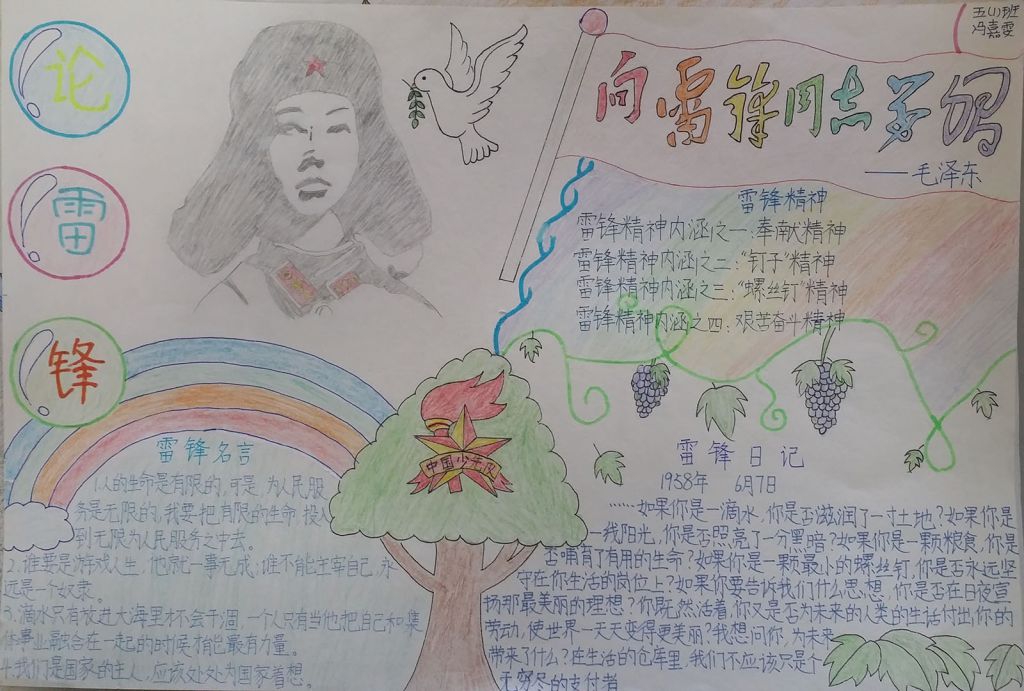 论
雷
锋
五(1)班
冯嘉雯
向雷锋同志学习
——毛泽东
雷锋精神
雷锋精神内涵之一:奉献精神
雷锋精神内涵之二:"钉子"精神
雷锋精神内涵之三:"螺丝钉"精神
雷锋精神内涵之四:艰苦奋斗精神
中国少年队
雷锋名言
1.人的生命是有限的,可是,为人民服
务是无限的,我要把有限的生命投入
到无限为人民服务之中去。
2.谁要是游戏人生,他就一事无成;谁不能主宰自己,永
远是一个奴隶。
3.滴水只有放进大海里才不会干涸,一个人只有当他把自己和集
体事业融合在一起的时候才能最有力量。
4.我们是国家的主人,应该处处为国家着想。
雷锋日记
1958年 6月7日
……如果你是一滴水,你是否滋润了一寸土地?如果你是
一线阳光,你是否照亮了一分黑暗?如果你是一颗粮食,你是
否哺育了有用的生命?如果你是一颗最小的螺丝钉,你是否永远坚
守在你生活的岗位上?如果你要告诉我们什么思想,你是否在日夜宣
扬那最美丽的理想?你既然活着,你又是否为未来的人类的生活付出你的
劳动,使世界一天天变得更美丽?我想问你,为未来
带来了什么?在生活的仓库里,我们不应该只是个
无穷尽的支付者